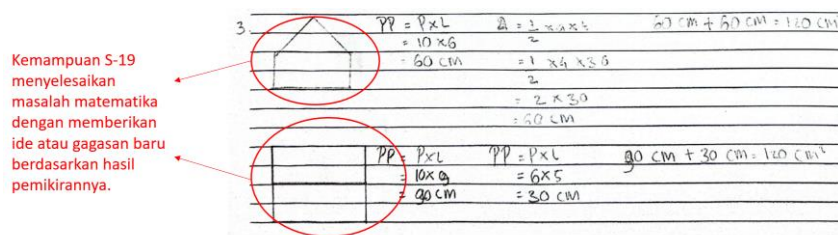 Kemampuan S-19
menyelesaikan
masalah matematika
dengan memberikan
ide atau gagasan baru
berdasarkan hasil
pemikirannya.
3.
PP = P x L
= 10 x 6
= 60 CM
Δ = 1/2 x a x t
= 1/2 x 4 x 30
= 2 x 30
= 60 CM
60 CM + 60 CM = 120 CM
PP = P x L
= 10 x 9
= 90 CM
PP = P x L
= 6 x 5
= 30 CM
90 CM + 30 CM = 120 CM²